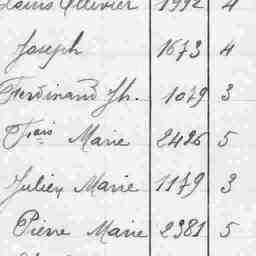 Louis Ollivier 1992 4
Joseph 1673 4
Ferdinand Jh. 1079 3
Frois Marie 2426 5
Julien Marie 1179 3
Pierre Marie 2381 5